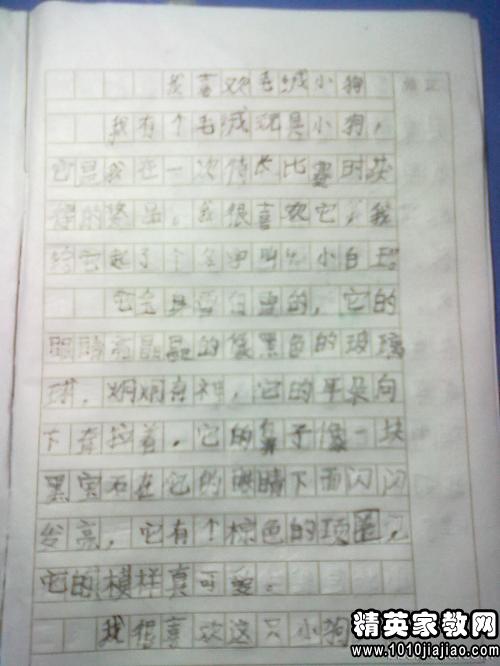 我喜欢毛绒小狗
我有个毛绒玩具小狗，
它是我在一次特长比赛时获
得的奖品。我很喜欢它，我
给它起了个名字叫
它全身雪白雪白的，它的
眼睛亮晶晶的像黑色的玻璃
球，炯炯有神，它的耳朵向
下耷拉着。它的鼻子像一块
黑宝石在它的眼睛下面闪闪
发亮，它有个棕色的项圈，
它的模样真可爱。
我很喜欢这只小狗
精英家教网
www.1010jiajiao.com